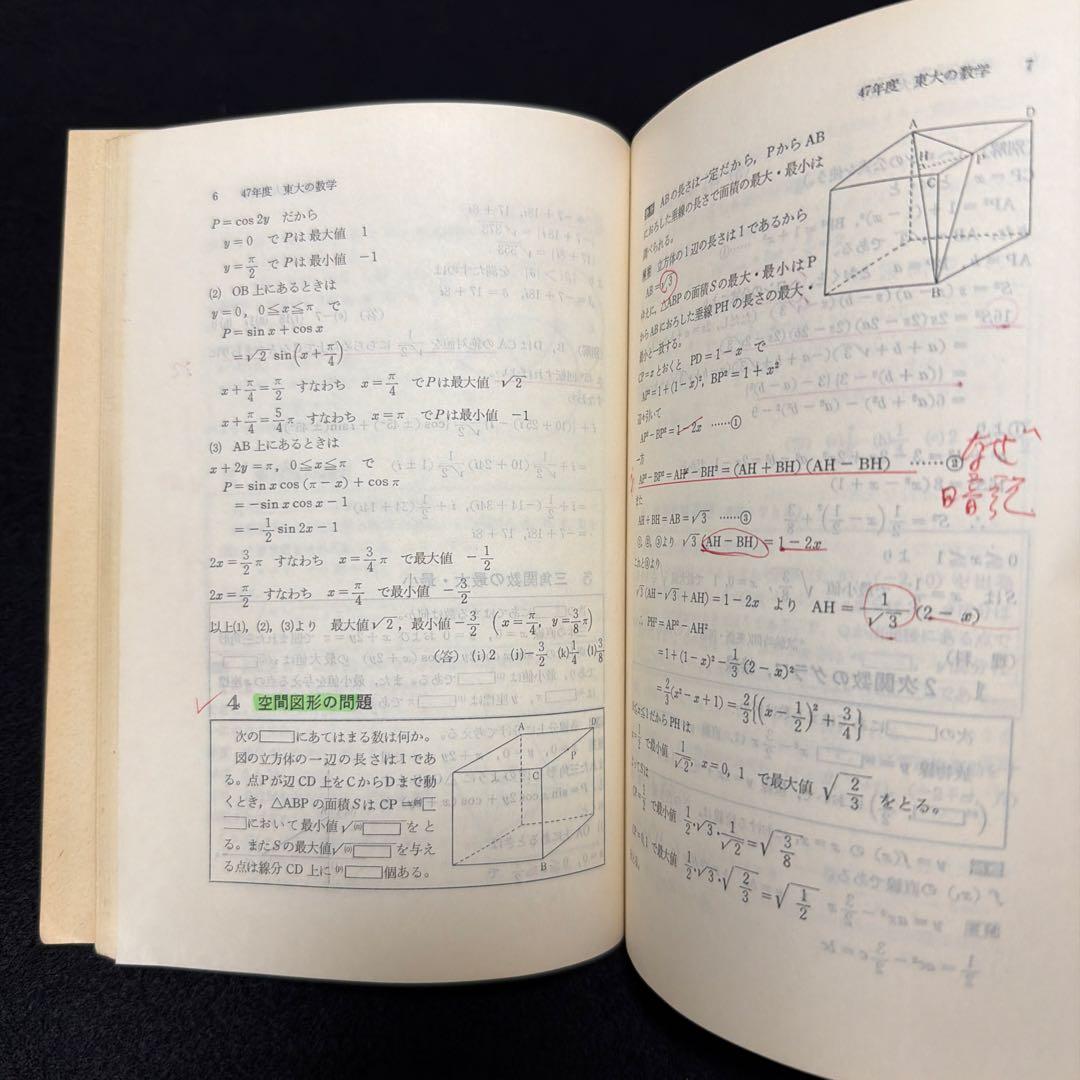 6 47年度 東大の数学
P=cos2y だから
y=0 でPは最大値 1
y=π/2 でPは最小値 -1
(2) OB上にあるときは
y=0, 0≦x≦π で
P=sin x+cos x
=√2 sin(x+π/4)
x+π/4=π/2 すなわち x=π/4 でPは最大値 √2
x+π/4=5/4π すなわち x=π でPは最小値 -1
(3) AB上にあるときは
x+2y=π, 0≦x≦π で
P=sin x cos(π-x)+cosπ
=-sin x cos x-1
=-1/2 sin 2x-1
2x=3/2π すなわち x=3/4π で最大値 -1/2
2x=π/2 すなわち x=π/4 で最小値 -3/2
以上(1), (2), (3)より 最大値√2, 最小値-3/2 (x=π/4, y=3/8π)
(答) (i)2 (j)-3/2 (k)1/4 (l)3/8
4 空間図形の問題
次の□にあてはまる数は何か。
図の立方体の一辺の長さは1であ
る。点Pが辺CD上をCからDまで動
くとき, △ABPの面積SはCP
において最小値√□をと
る。またSの最大値√□を与え
る点は線分CD上に□個ある。
A
D
P
C
B
47年度 東大の数学 7
ABの長さは一定だから, PからAB
におろした垂線の長さで面積の最大・最小は
調べられる。
解答 立方体の1辺の長さは1であるから
AB=√3
ゆえに, △ABPの面積Sの最大・最小はP
からABにおろした垂線PHの長さの最大・
最小と一致する。
CP=xとおくと PD=1-x で
AP²=1+(1-x)², BP²=1+x²
辺々引いて
AP²-BP²=1-2x ……①
一方
AP²-BP²=AH²-BH²=(AH+BH)(AH-BH) ……②
なぜ
暗記
また
AH+BH=AB=√3 ……③
①, ②, ③より √3(AH-BH)=1-2x
これと③より
√3(AH-√3+AH)=1-2x より AH=1/√3(2-x)
∴ PH²=AP²-AH²
=1+(1-x)²-1/3(2-x)²
=2/3(x²-x+1)=2/3{(x-1/2)²+3/4}
0≦x≦1だからPHは
x=1/2 で最小値 1/√2, x=0, 1 で最大値 √2/3 をとる。
よってSは
CP=1/2 で最小値 1/2・√3・1/√2=√3/8
CP=0, 1 で最大値 1/2・√3・√2/3=√1/2
A
D
H
P
C
B